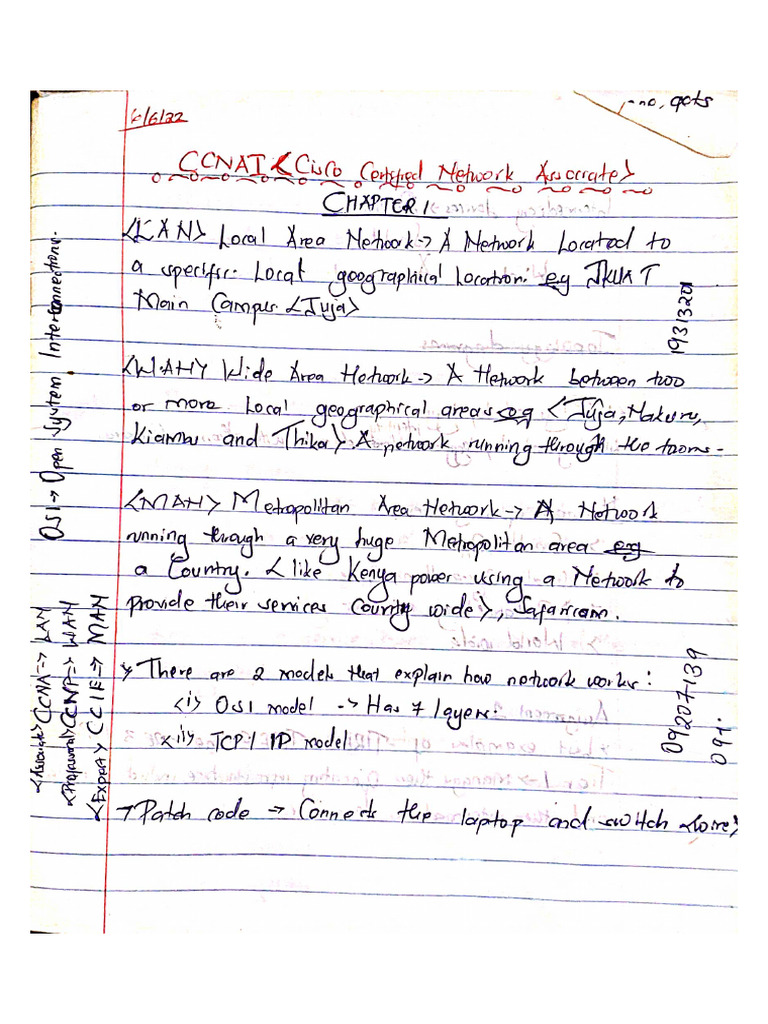 6/6/22
CCNAI <Cisco Certified Network Associate>
CHAPTER 1
<LAN> Local Area Network -> A Network Located to
a specific Local geographical Location. eg JKUAT
Main Campus <Juja>
<WAN> Wide Area Network -> A Network between two
or more Local geographical areas eg <Juja, Nakuru,
Kiambu and Thika>. A network running through the towns.
<MAN> Metropolitan Area Network -> A Network
running through a very huge Metropolitan area eg
a Country. < like Kenya power using a Network to
provide their services Country wide>, Safaricom.
> There are 2 models that explain how network works:
<i> OSI model -> Has 7 layers.
<ii> TCP/IP model
-> Patch code -> Connects the laptop and switch <wire>
OSI -> Open System Interconnections.
<Associate> CCNA => LAN
<Professional> CCNP => WAN
<Expert> CCIE => MAN
19313201
09207139
091.